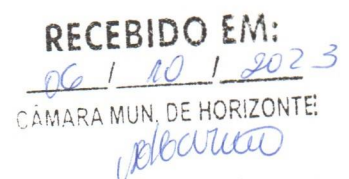 RECEBIDO EM:
06 / 10 / 2023
CÂMARA MUN. DE HORIZONTE